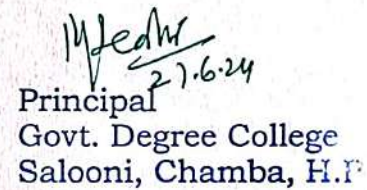 27.6.24
Principal
Govt. Degree College
Salooni, Chamba, H.P